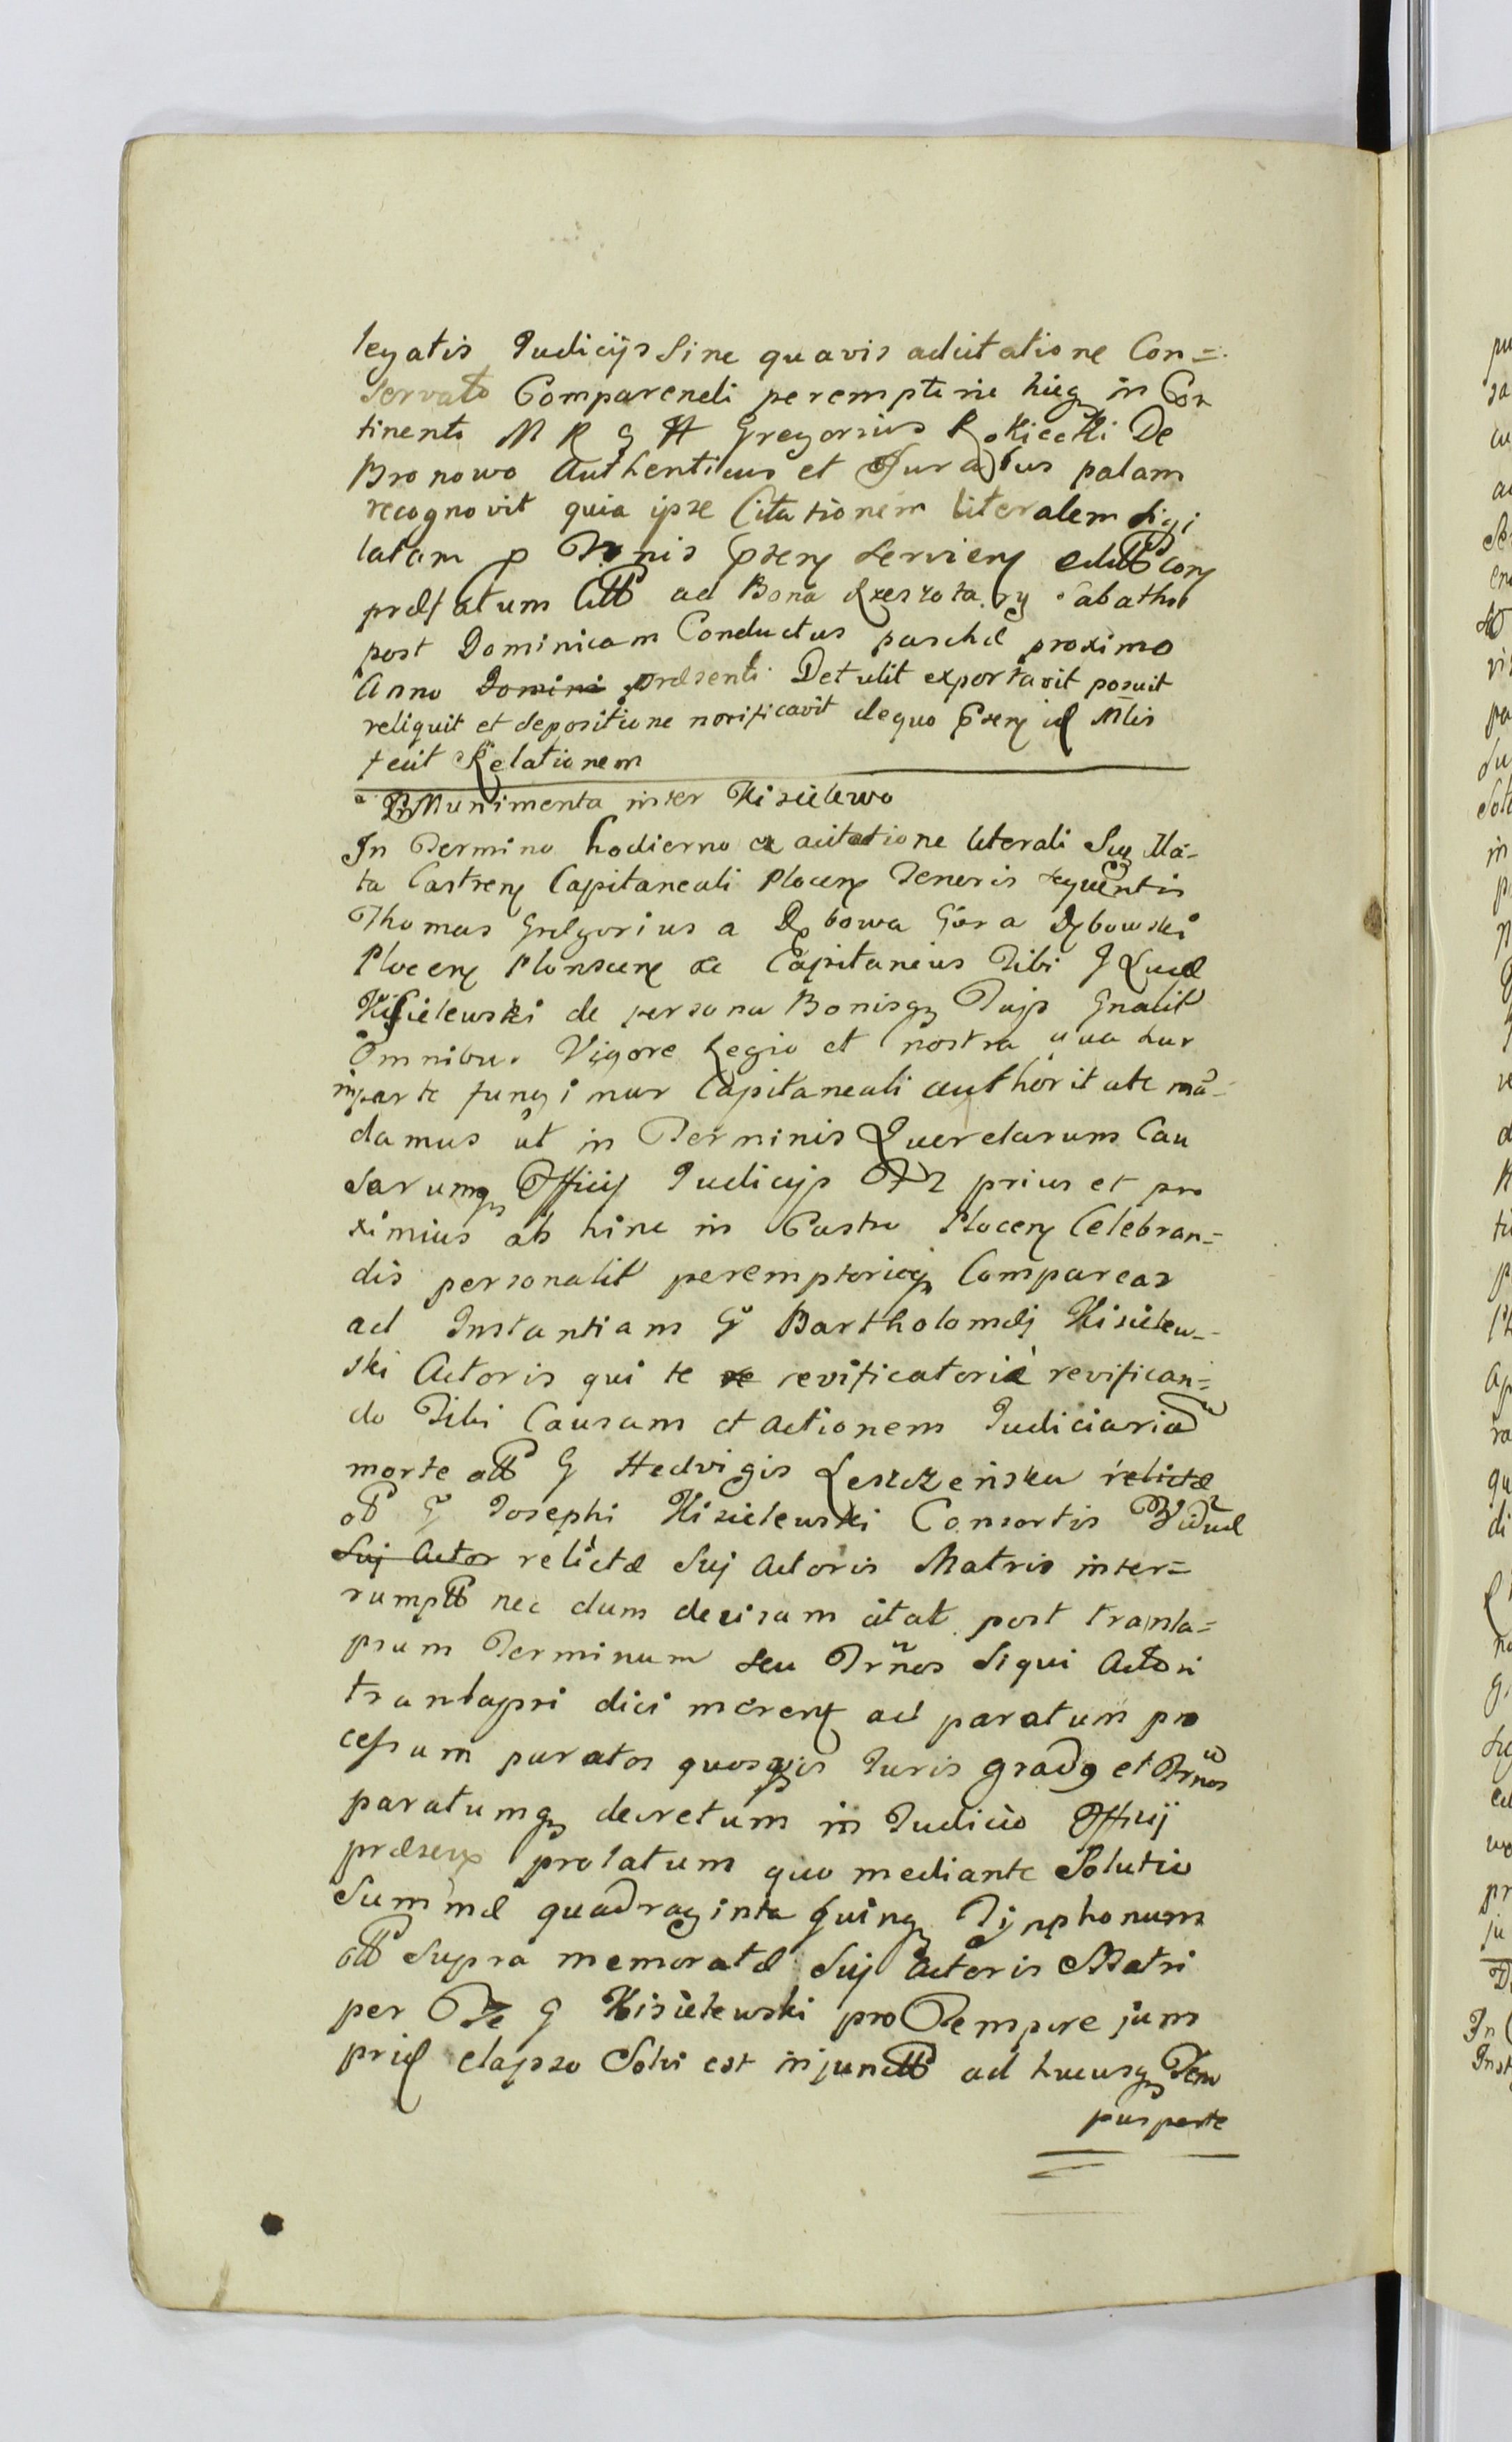 legatis Judicijs Sine quavis aditatione Con=
servato Comparendi peremptorie hicq in Con
tinenti M R G H Gregorius Rokicki De
Bronowo Authenticus et Juratus palam
recognovit quia ipse Citationem literalem Sigi
latam p Tnis servien
præfatum ad Bona Sabatho
post Dominicam Conductus paschæ proximo
Anno Domini præsenti Detulit exportavit posuit
reliquit et depositione notificavit dequo Mlis
fecit Relationem
Munimenta inter Kisielewo
In Termino hodierno ex citatione literali
ta Castren Capitaneali Plocen Tenoris sequentis
Thomas Grægorius a Dębowa Góra Dębowski
Plocen Plonscen & Capitaneus Tibi G Lucæ
Kisielewski de persona Bonisq Tuijs Gnalit
Omnibus Vigore Regio et nostra qua hac
inparte fungimur Capitaneali authoritate mã-
damus ut in Terminis Querelarum Cau
sarumq Officij Judicijs prius et pro
ximius ab hinc in Castro Plocen Celebran=
dis personalit peremptorieq Compareas
ad Instantiam G Bartholomæj Kisielew-
ski Actoris qui te re revificatorie revifican=
do Tibi Causam et Actionem Judiciariã
morte G Hedvigis Leszczeńska relictæ
G Josephi Kisielewski Consortis Viduæ
Suj Actor relictæ Suj Actoris Matris inter=
rumpt nec dum decisam citat post transla=
psum Terminum seu Trnos Siqui Actori
translapsi dici meren ad paratum pro
cessum paratos quosqvis Juris gradq et Trnos
paratumq decretum in Judicio Officij
præsen prolatum quo mediante Solutio
Summæ quadraginta quinq Tijnphonum
Supra memoratæ Suj Actoris Matri
per Te G Kisielewski pro Tempore jam
elapso Solvi est injunct ad hucusq Tem
pus parte